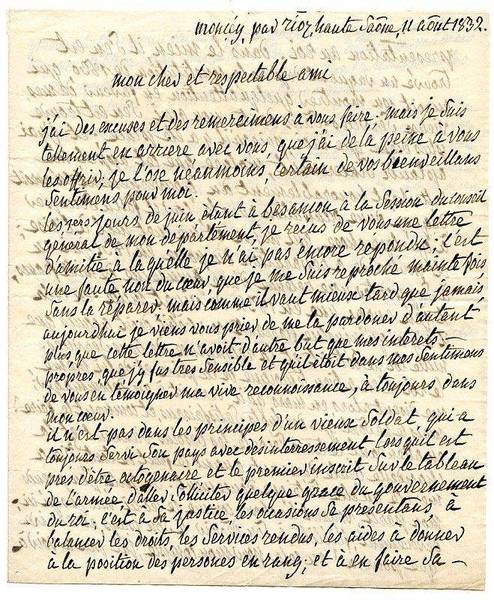 moncey, par rioz haute Saône, 11 août 1832.
mon cher et respectable ami
j'ai des excuses et des remercimens à vous faire. mais je suis
tellement en arriere avec vous que j'ai de la peine à vous
les offrir, je l'ose néanmoins, certain de vos bienveillans
Sentimens pour moi.
les 1ers jours de juin étant à besançon à la Session du conseil
général de mon département, je reçus de vous une lettre
d'amitié à la quelle je n'ai pas encore repondu; c'est
une faute non du cœur, que je me suis reproché mainte fois
Sans la réparer. mais comme il vaut mieux tard que jamais
aujourdhui je viens vous prier de me la pardoner d'autant
plus, que cette lettre n'avoit d'autre but que mes interets
propres, que j'y fus tres Sensible et qu'il étoit dans mes Sentimens
de vous en témoigner ma vive reconnoissance, à toujours, dans
mon cœur.
il n'est pas dans les principes d'un vieux Soldat, qui a
toujours Servi Son pays avec désinterressement, lors qu'il est
pres d'être octogenaire et le premier inscrit, Sur le tableau
de l'armée d'aller Solliciter quelque grace du gouvernement
du roi. c'est à Sa justice, les occasions Se présentans, à
balancer les droits, les Services rendus, les aides à donner
à la position des persones en rang; et à en faire Sa –